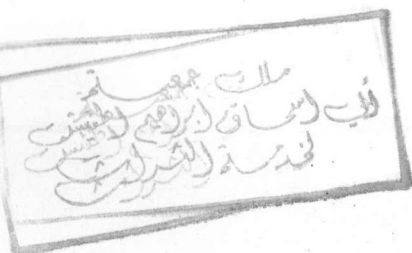 ملك جمعية
أبي اسحاق ابراهيم اطفيش
لخدمة التراث